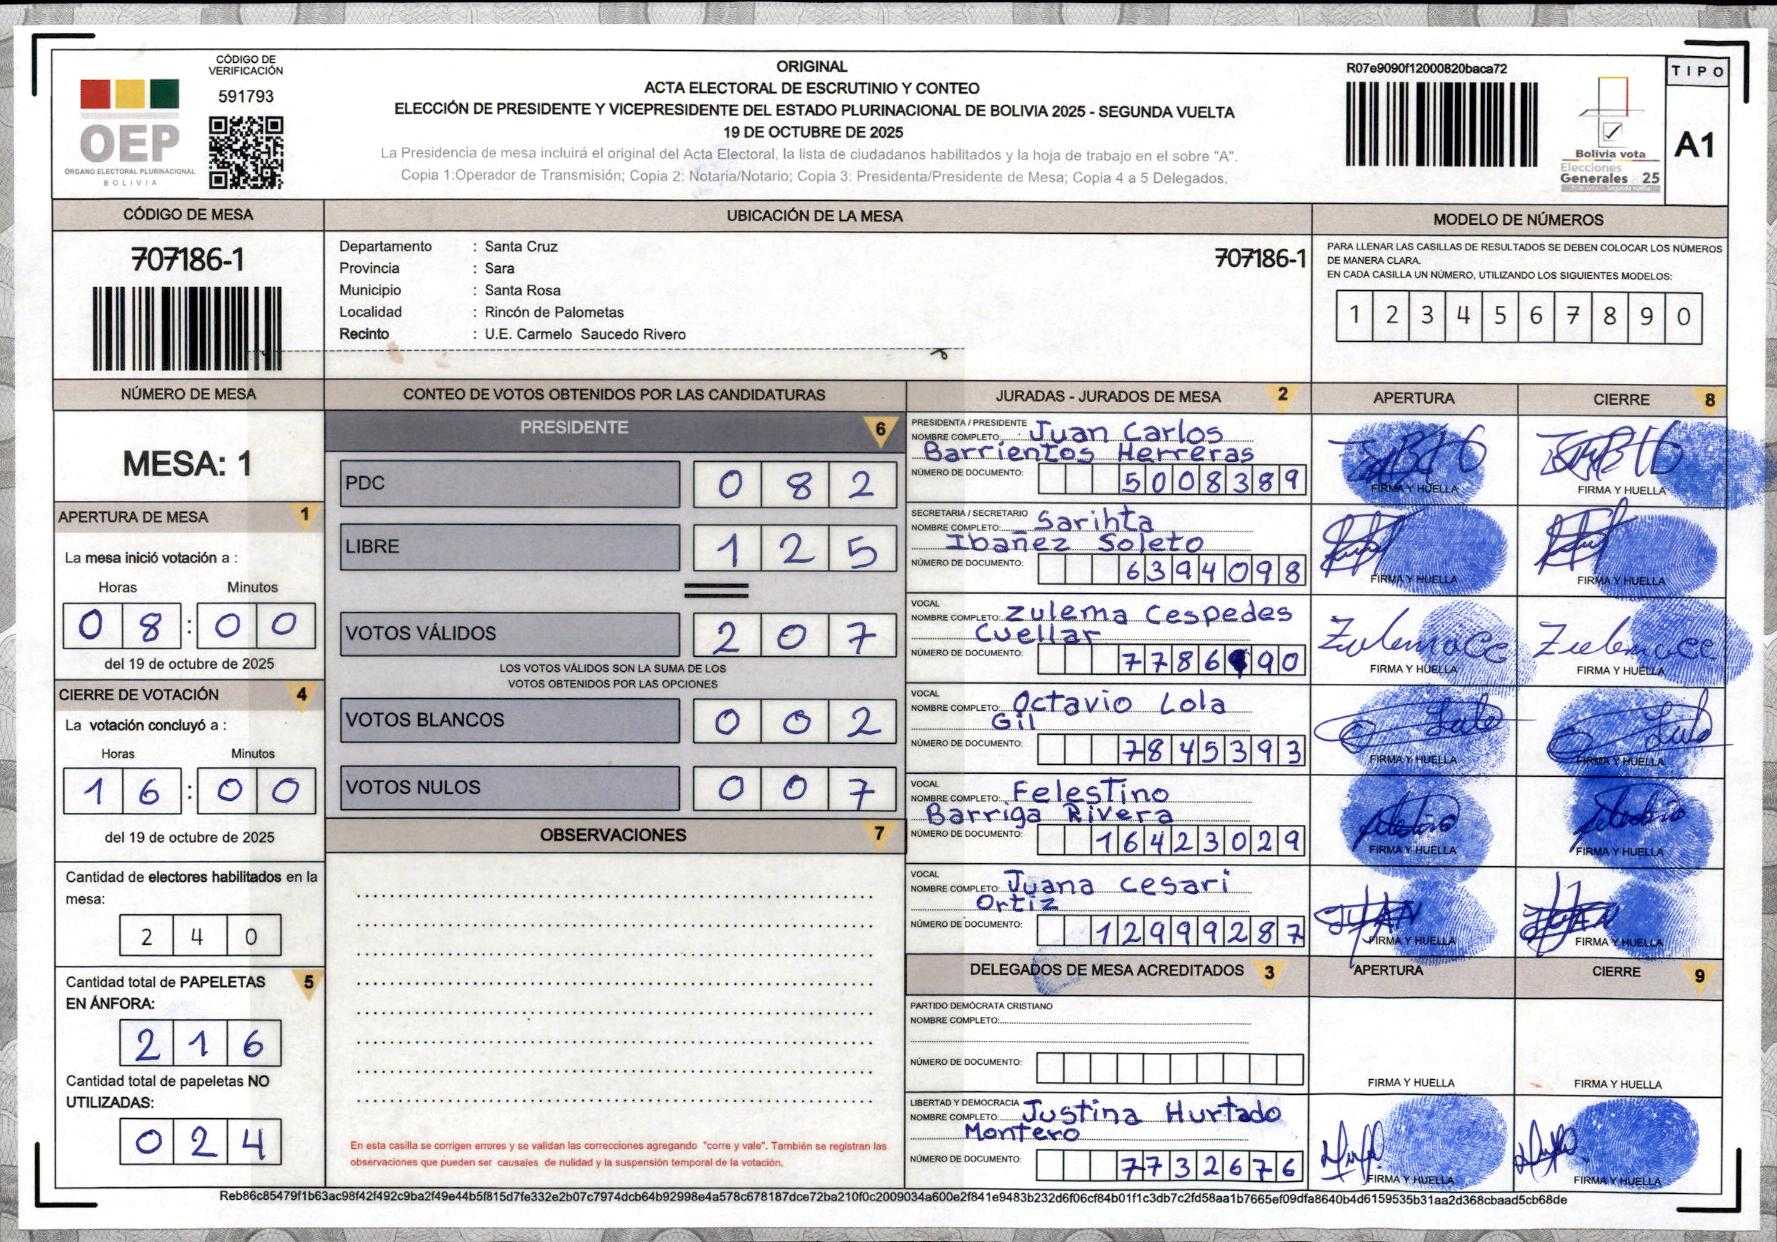 CÓDIGO DE
VERIFICACIÓN
591793
OEP
ÓRGANO ELECTORAL PLURINACIONAL
BOLIVIA
ORIGINAL
ACTA ELECTORAL DE ESCRUTINIO Y CONTEO
ELECCIÓN DE PRESIDENTE Y VICEPRESIDENTE DEL ESTADO PLURINACIONAL DE BOLIVIA 2025 - SEGUNDA VUELTA
19 DE OCTUBRE DE 2025
La Presidencia de mesa incluirá el original del Acta Electoral, la lista de ciudadanos habilitados y la hoja de trabajo en el sobre "A".
Copia 1:Operador de Transmisión; Copia 2: Notaria/Notario; Copia 3: Presidenta/Presidente de Mesa; Copia 4 a 5 Delegados.
R07e9090f12000820baca72
Bolivia vota
Elecciones
Generales 25
TIPO
A1
CÓDIGO DE MESA
707186-1
UBICACIÓN DE LA MESA
Departamento : Santa Cruz
Provincia : Sara
Municipio : Santa Rosa
Localidad : Rincón de Palometas
Recinto : U.E. Carmelo Saucedo Rivero
707186-1
MODELO DE NÚMEROS
PARA LLENAR LAS CASILLAS DE RESULTADOS SE DEBEN COLOCAR LOS NÚMEROS
DE MANERA CLARA.
EN CADA CASILLA UN NÚMERO, UTILIZANDO LOS SIGUIENTES MODELOS:
1 2 3 4 5 6 7 8 9 0
NÚMERO DE MESA
MESA: 1
APERTURA DE MESA 1
La mesa inició votación a :
Horas Minutos
0 8 : 0 0
del 19 de octubre de 2025
CIERRE DE VOTACIÓN 4
La votación concluyó a :
Horas Minutos
1 6 : 0 0
del 19 de octubre de 2025
Cantidad de electores habilitados en la
mesa:
2 4 0
Cantidad total de PAPELETAS 5
EN ÁNFORA:
2 1 6
Cantidad total de papeletas NO
UTILIZADAS:
0 2 4
CONTEO DE VOTOS OBTENIDOS POR LAS CANDIDATURAS
PRESIDENTE 6
PDC 0 8 2
LIBRE 1 2 5
VOTOS VÁLIDOS 2 0 7
LOS VOTOS VÁLIDOS SON LA SUMA DE LOS
VOTOS OBTENIDOS POR LAS OPCIONES
VOTOS BLANCOS 0 0 2
VOTOS NULOS 0 0 7
OBSERVACIONES 7
En esta casilla se corrigen errores y se validan las correcciones agregando "corre y vale". También se registran las
observaciones que pueden ser causales de nulidad y la suspensión temporal de la votación.
JURADAS - JURADOS DE MESA 2
APERTURA
CIERRE 8
PRESIDENTA / PRESIDENTE
NOMBRE COMPLETO: Juan Carlos
Barrientos Herreras
NÚMERO DE DOCUMENTO: 5008389
FIRMA Y HUELLA
FIRMA Y HUELLA
SECRETARIA / SECRETARIO
NOMBRE COMPLETO: Sarihta
Ibañez Soleto
NÚMERO DE DOCUMENTO: 6394098
FIRMA Y HUELLA
FIRMA Y HUELLA
VOCAL
NOMBRE COMPLETO: Zulema Cespedes
Cuellar
NÚMERO DE DOCUMENTO:
Zulemacc
FIRMA Y HUELLA
Zulemacc
FIRMA Y HUELLA
VOCAL
NOMBRE COMPLETO: Octavio Lola
Gil
NÚMERO DE DOCUMENTO: 7845393
FIRMA Y HUELLA
FIRMA Y HUELLA
VOCAL
NOMBRE COMPLETO: Felestino
Barriga Rivera
NÚMERO DE DOCUMENTO: 16423029
FIRMA Y HUELLA
FIRMA Y HUELLA
VOCAL
NOMBRE COMPLETO: Juana Cesari
Ortiz
NÚMERO DE DOCUMENTO: 12999287
FIRMA Y HUELLA
FIRMA Y HUELLA
DELEGADOS DE MESA ACREDITADOS 3
APERTURA
CIERRE 9
PARTIDO DEMÓCRATA CRISTIANO
NOMBRE COMPLETO:
NÚMERO DE DOCUMENTO:
FIRMA Y HUELLA
FIRMA Y HUELLA
LIBERTAD Y DEMOCRACIA
NOMBRE COMPLETO: Justina Hurtado
Montero
NÚMERO DE DOCUMENTO: 7732676
FIRMA Y HUELLA
FIRMA Y HUELLA